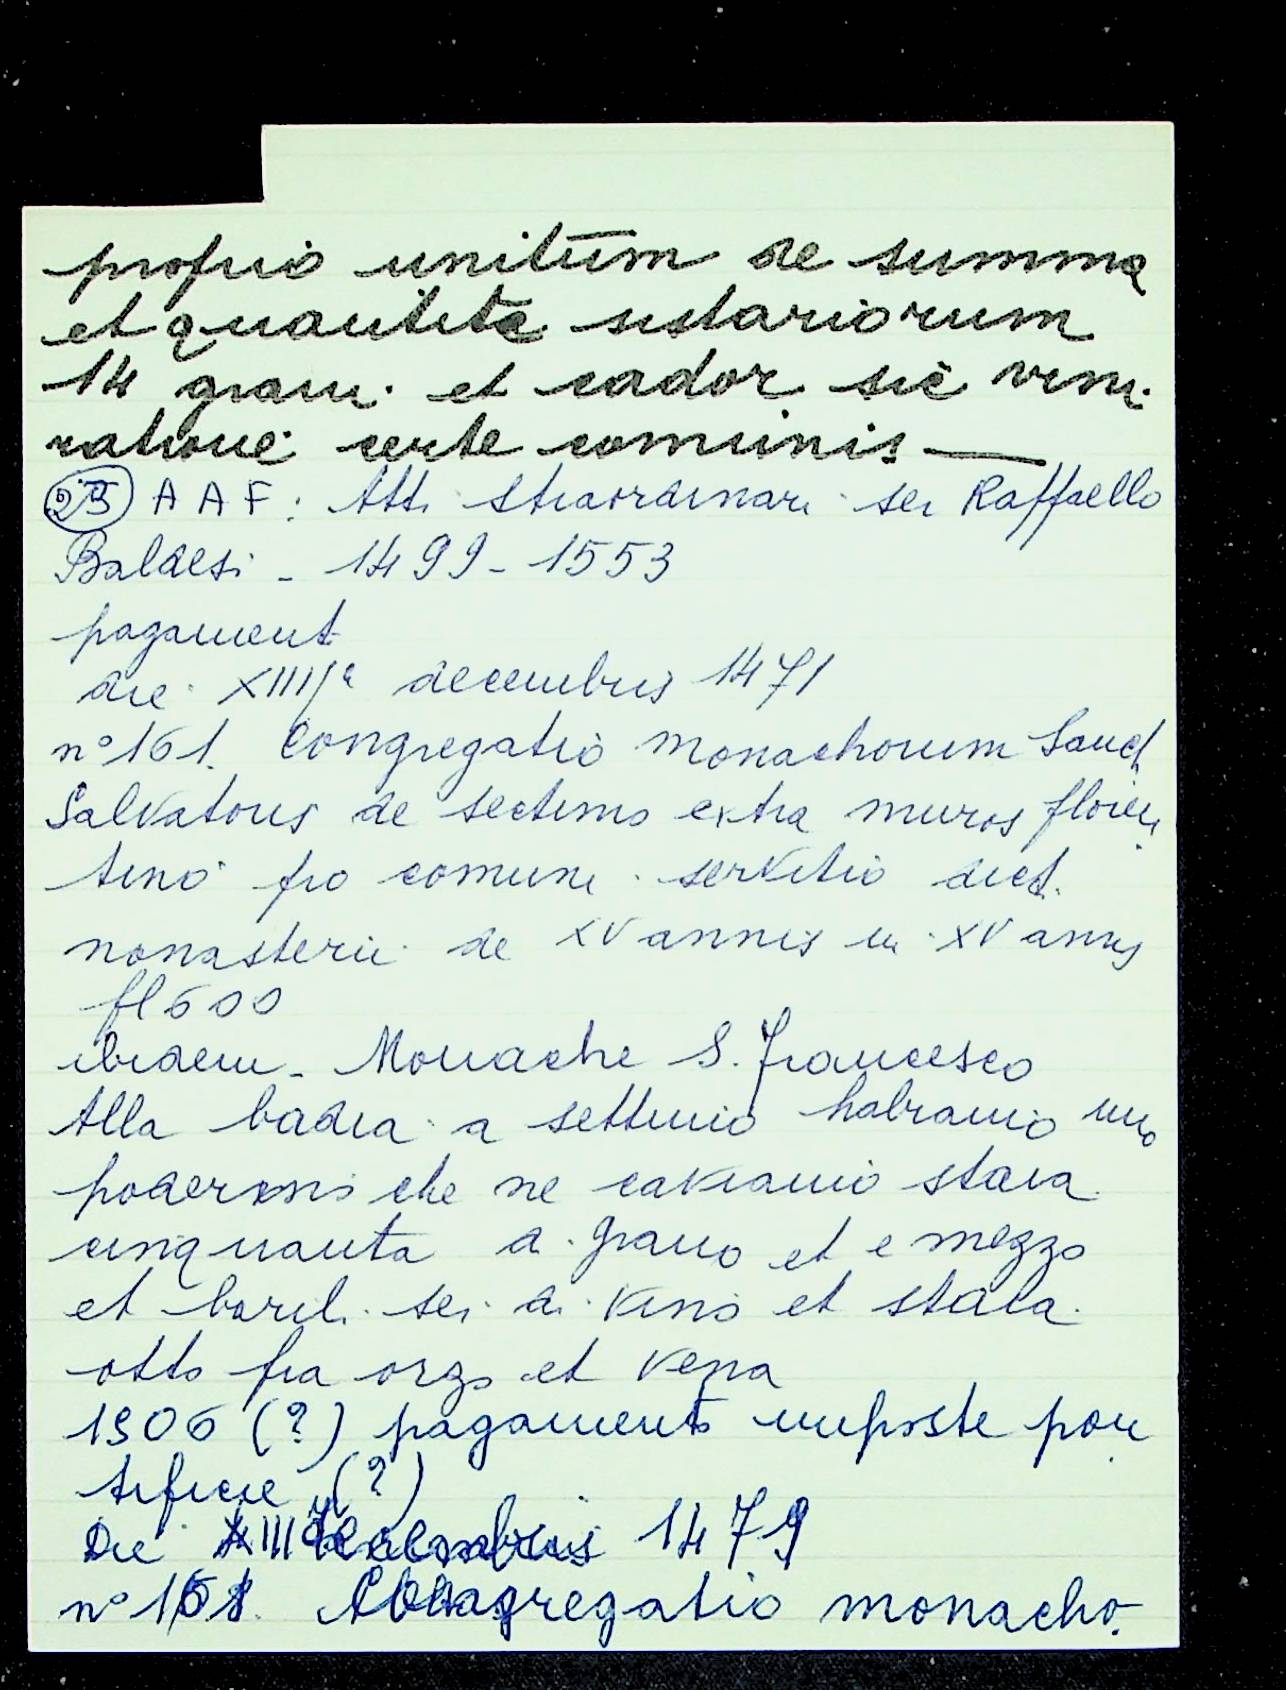 proprio unitum de summa
et quantita sistariorum
14 gran. et cador sic vin.
ratione certe comunis —
23 A A F: Atti straordinari ser Raffaello
Baldesi - 1499 - 1553
pagament
die XIIIIa decembris 1471
n° 161. Congregatio monachorum Sanct
Salvatoris de septimo extra muros floren
tino pro comuni servitio dict.
monasterii de XV annis in XV annis
fl 600
ibidem - Monache S. Francesco
Alla badia a settimo habiamo uno
poderono che ne caviamo staia
cinquanta di grano et e mezzo
et baril. sei di vino et staia
otto fra orzo et vena
1306 (?) pagamento imposte pon
tificie (?)
Die XIIII decembris 1479
n° 161. Congregatio monacho.